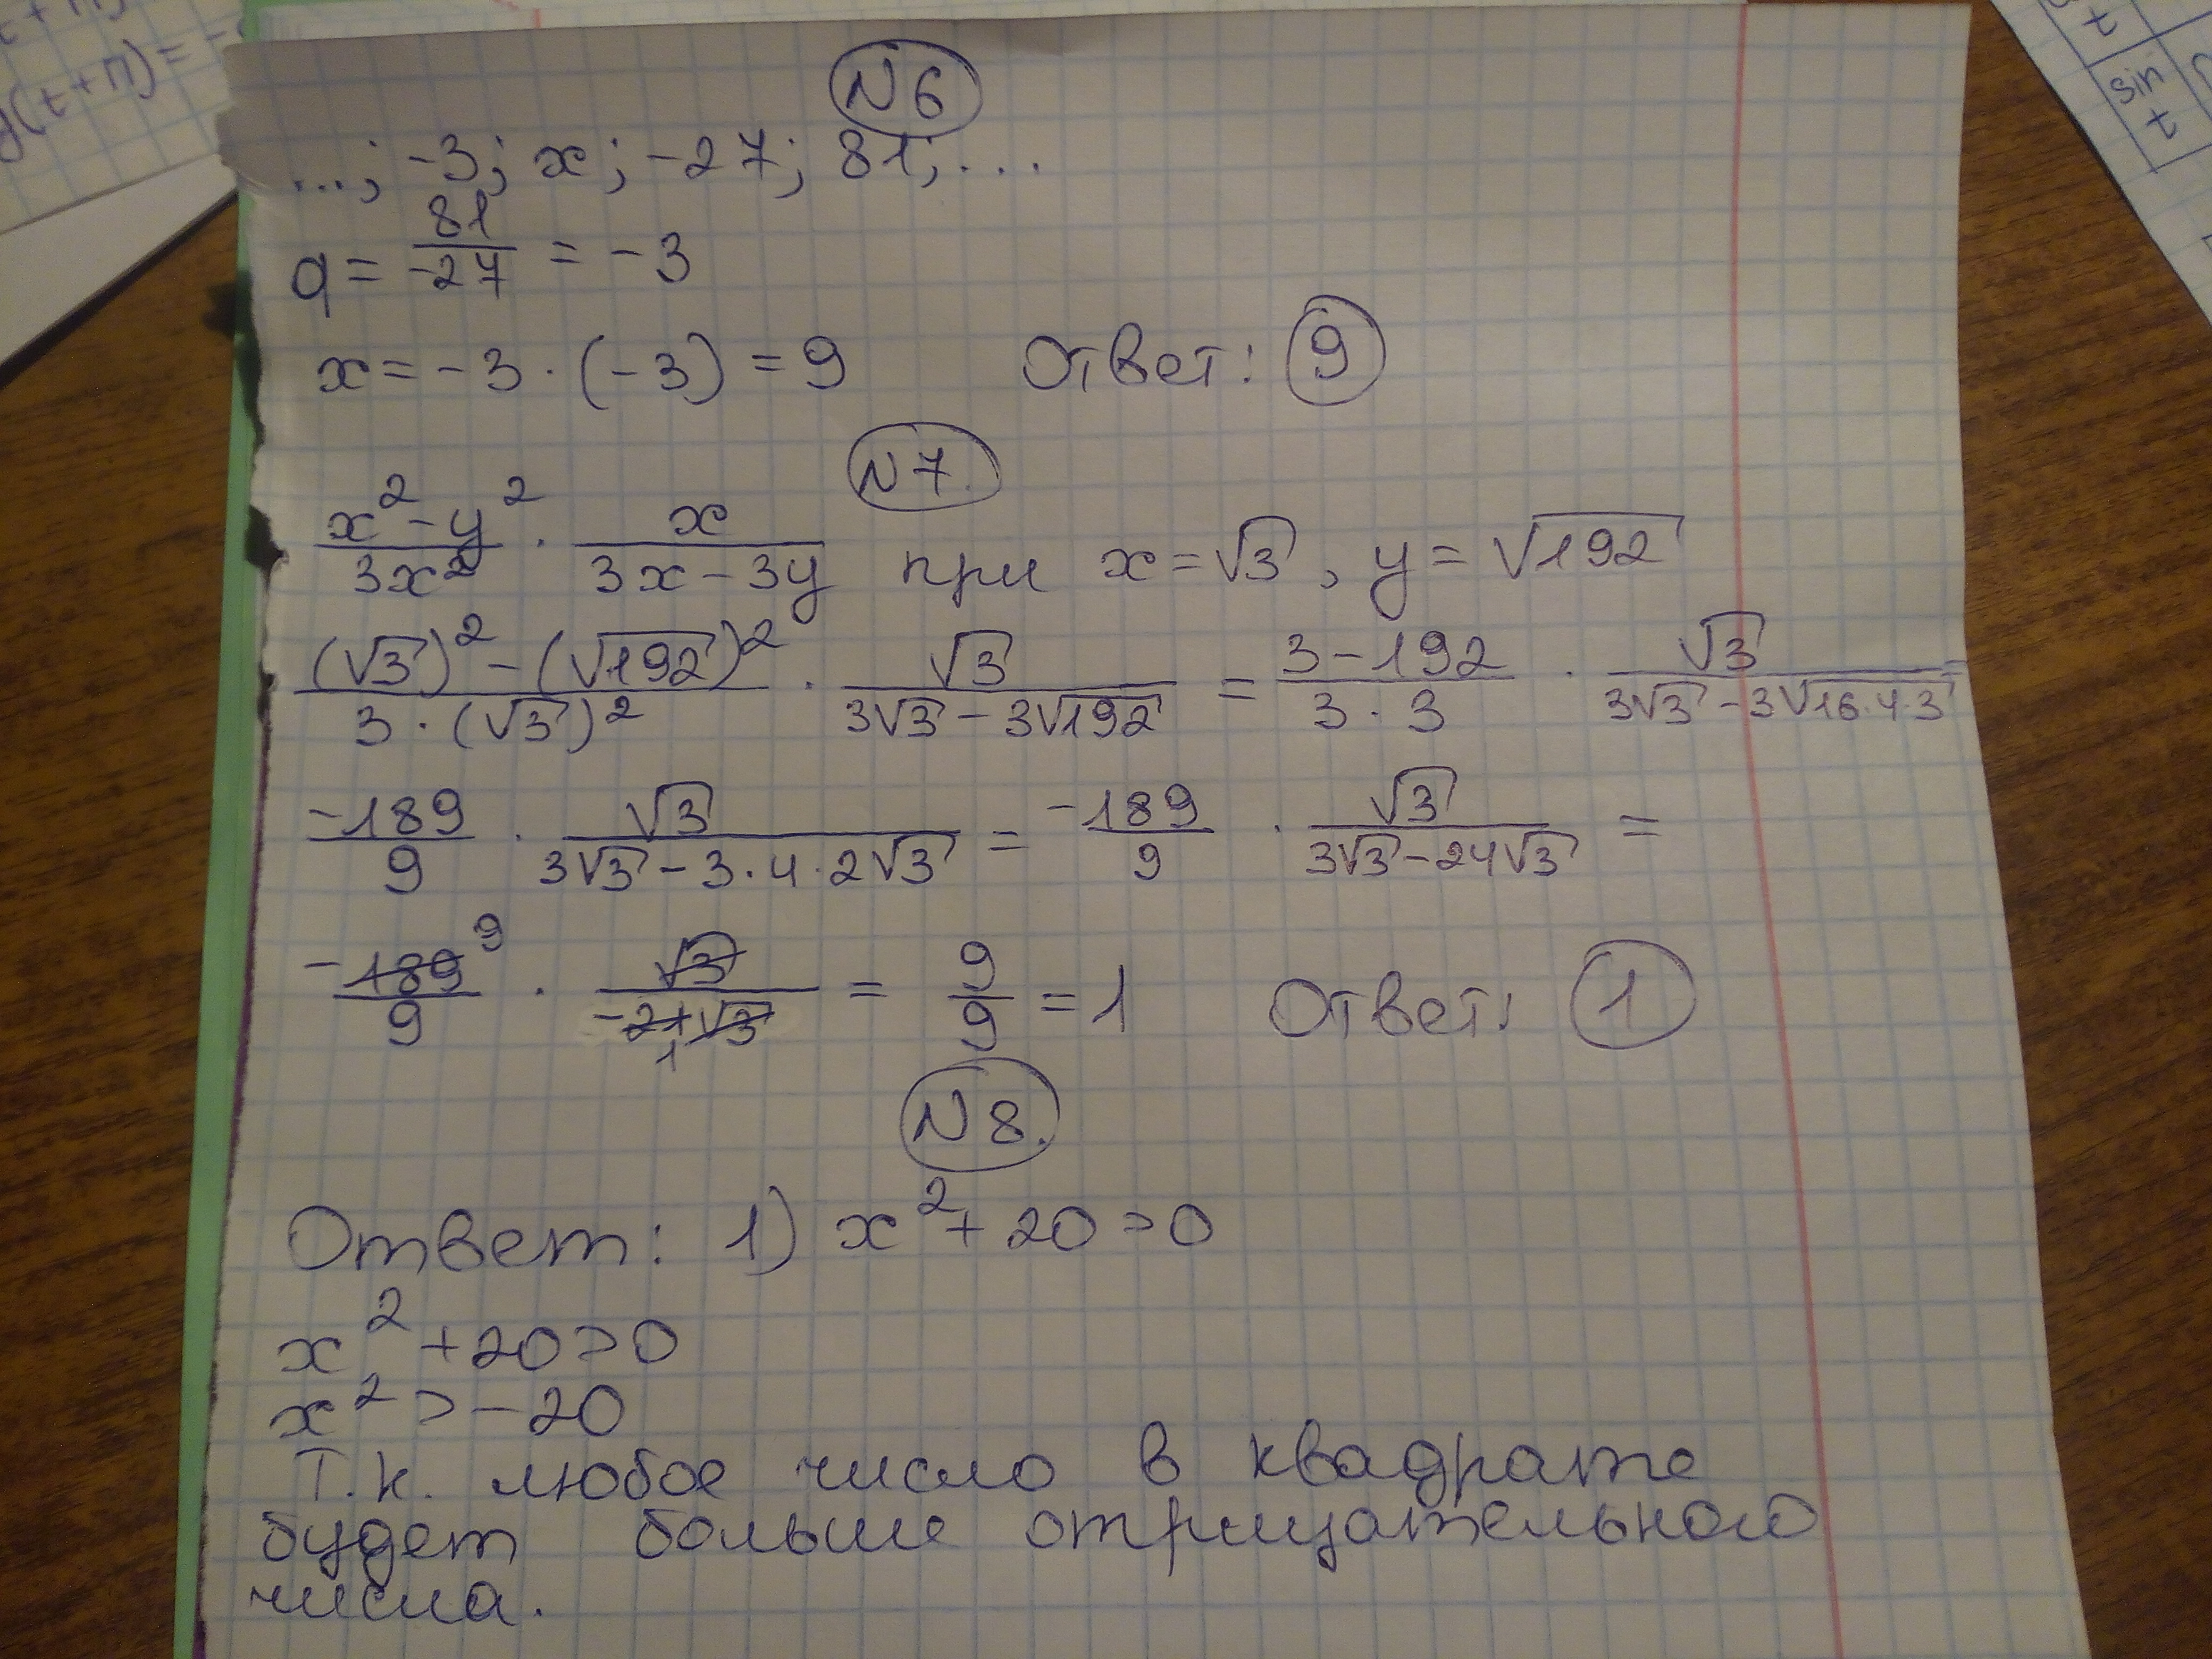 t
(t+π)=
sin
t
N6
...; -3; x; -27; 81; ...
q = 81/-27 = -3
x = -3 · (-3) = 9 Ответ: 9
N7.
x² - y²/3x² · x/3x - 3y при x = √3, y = √192
(√3)² - (√192)²/3 · (√3)² · √3/3√3 - 3√192 = 3 - 192/3 · 3 · √3/3√3 - 3√16·4·3
-189/9 · √3/3√3 - 3·4·2√3 = -189/9 · √3/3√3 - 24√3 =
-189 9/9 · √3/-21√3 1 = 9/9 = 1 Ответ: 1
N8.
Ответ: 1) x² + 20 > 0
x² + 20 > 0
x² > -20
Т.к. любое число в квадрате
будет больше отрицательного
числа.